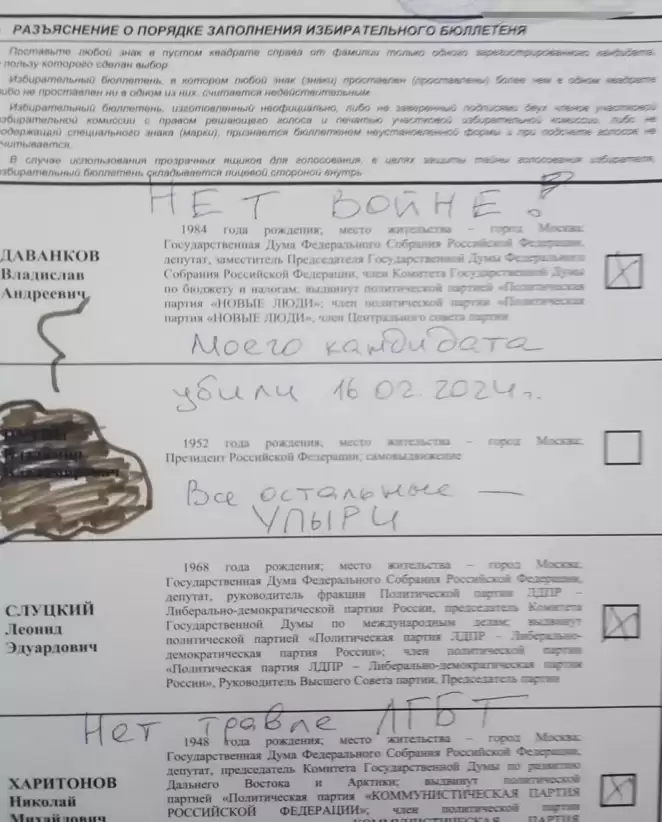 РАЗЪЯСНЕНИЕ О ПОРЯДКЕ ЗАПОЛНЕНИЯ ИЗБИРАТЕЛЬНОГО БЮЛЛЕТЕНЯ
Поставьте любой знак в пустом квадрате справа от фамилии только одного зарегистрированного кандидата,
пользу которого сделан выбор.
Избирательный бюллетень, в котором любой знак (знаки) проставлен (проставлены) более чем в одном квадрате
либо не проставлен ни в одном из них, считается недействительным.
Избирательный бюллетень, изготовленный неофициально, либо не заверенный подписями двух членов участковой
избирательной комиссии с правом решающего голоса и печатью участковой избирательной комиссии, либо не
содержащий специального знака (марки), признается бюллетенем неустановленной формы и при подсчете голосов не
учитывается.
В случае использования прозрачных ящиков для голосования, в целях защиты тайны голосования избирателя,
избирательный бюллетень складывается лицевой стороной внутрь.
НЕТ ВОЙНЕ!
ДАВАНКОВ
Владислав
Андреевич
1984 года рождения; место жительства – город Москва;
Государственная Дума Федерального Собрания Российской Федерации,
депутат, заместитель Председателя Государственной Думы Федерального
Собрания Российской Федерации, член Комитета Государственной Думы
по бюджету и налогам; выдвинут политической партией «Политическая
партия «НОВЫЕ ЛЮДИ»; член политической партии «Политическая
партия «НОВЫЕ ЛЮДИ», член Центрального совета партии
Моего кандидата
убили 16.02.2024г.
Владимир
Владимирович
1952 года рождения; место жительства – город Москва;
Президент Российской Федерации; самовыдвижение
Все остальные —
УПЫРИ
СЛУЦКИЙ
Леонид
Эдуардович
1968 года рождения; место жительства – город Москва;
Государственная Дума Федерального Собрания Российской Федерации,
депутат, руководитель фракции Политической партии ЛДПР –
Либерально-демократической партии России, председатель Комитета
Государственной Думы по международным делам; выдвинут
политической партией «Политическая партия ЛДПР – Либерально-
демократическая партия России»; член политической партии
«Политическая партия ЛДПР – Либерально-демократическая партия
России», Руководитель Высшего Совета партии, Председатель партии
Нет травле ЛГБТ
ХАРИТОНОВ
Николай
Михайлович
1948 года рождения; место жительства – город Москва;
Государственная Дума Федерального Собрания Российской Федерации,
депутат, председатель Комитета Государственной Думы по развитию
Дальнего Востока и Арктики; выдвинут политической
партией «Политическая партия «КОММУНИСТИЧЕСКАЯ ПАРТИЯ
РОССИЙСКОЙ ФЕДЕРАЦИИ»; член политической партии
«Политическая партия «КОММУНИСТИЧЕСКАЯ ПАРТИЯ